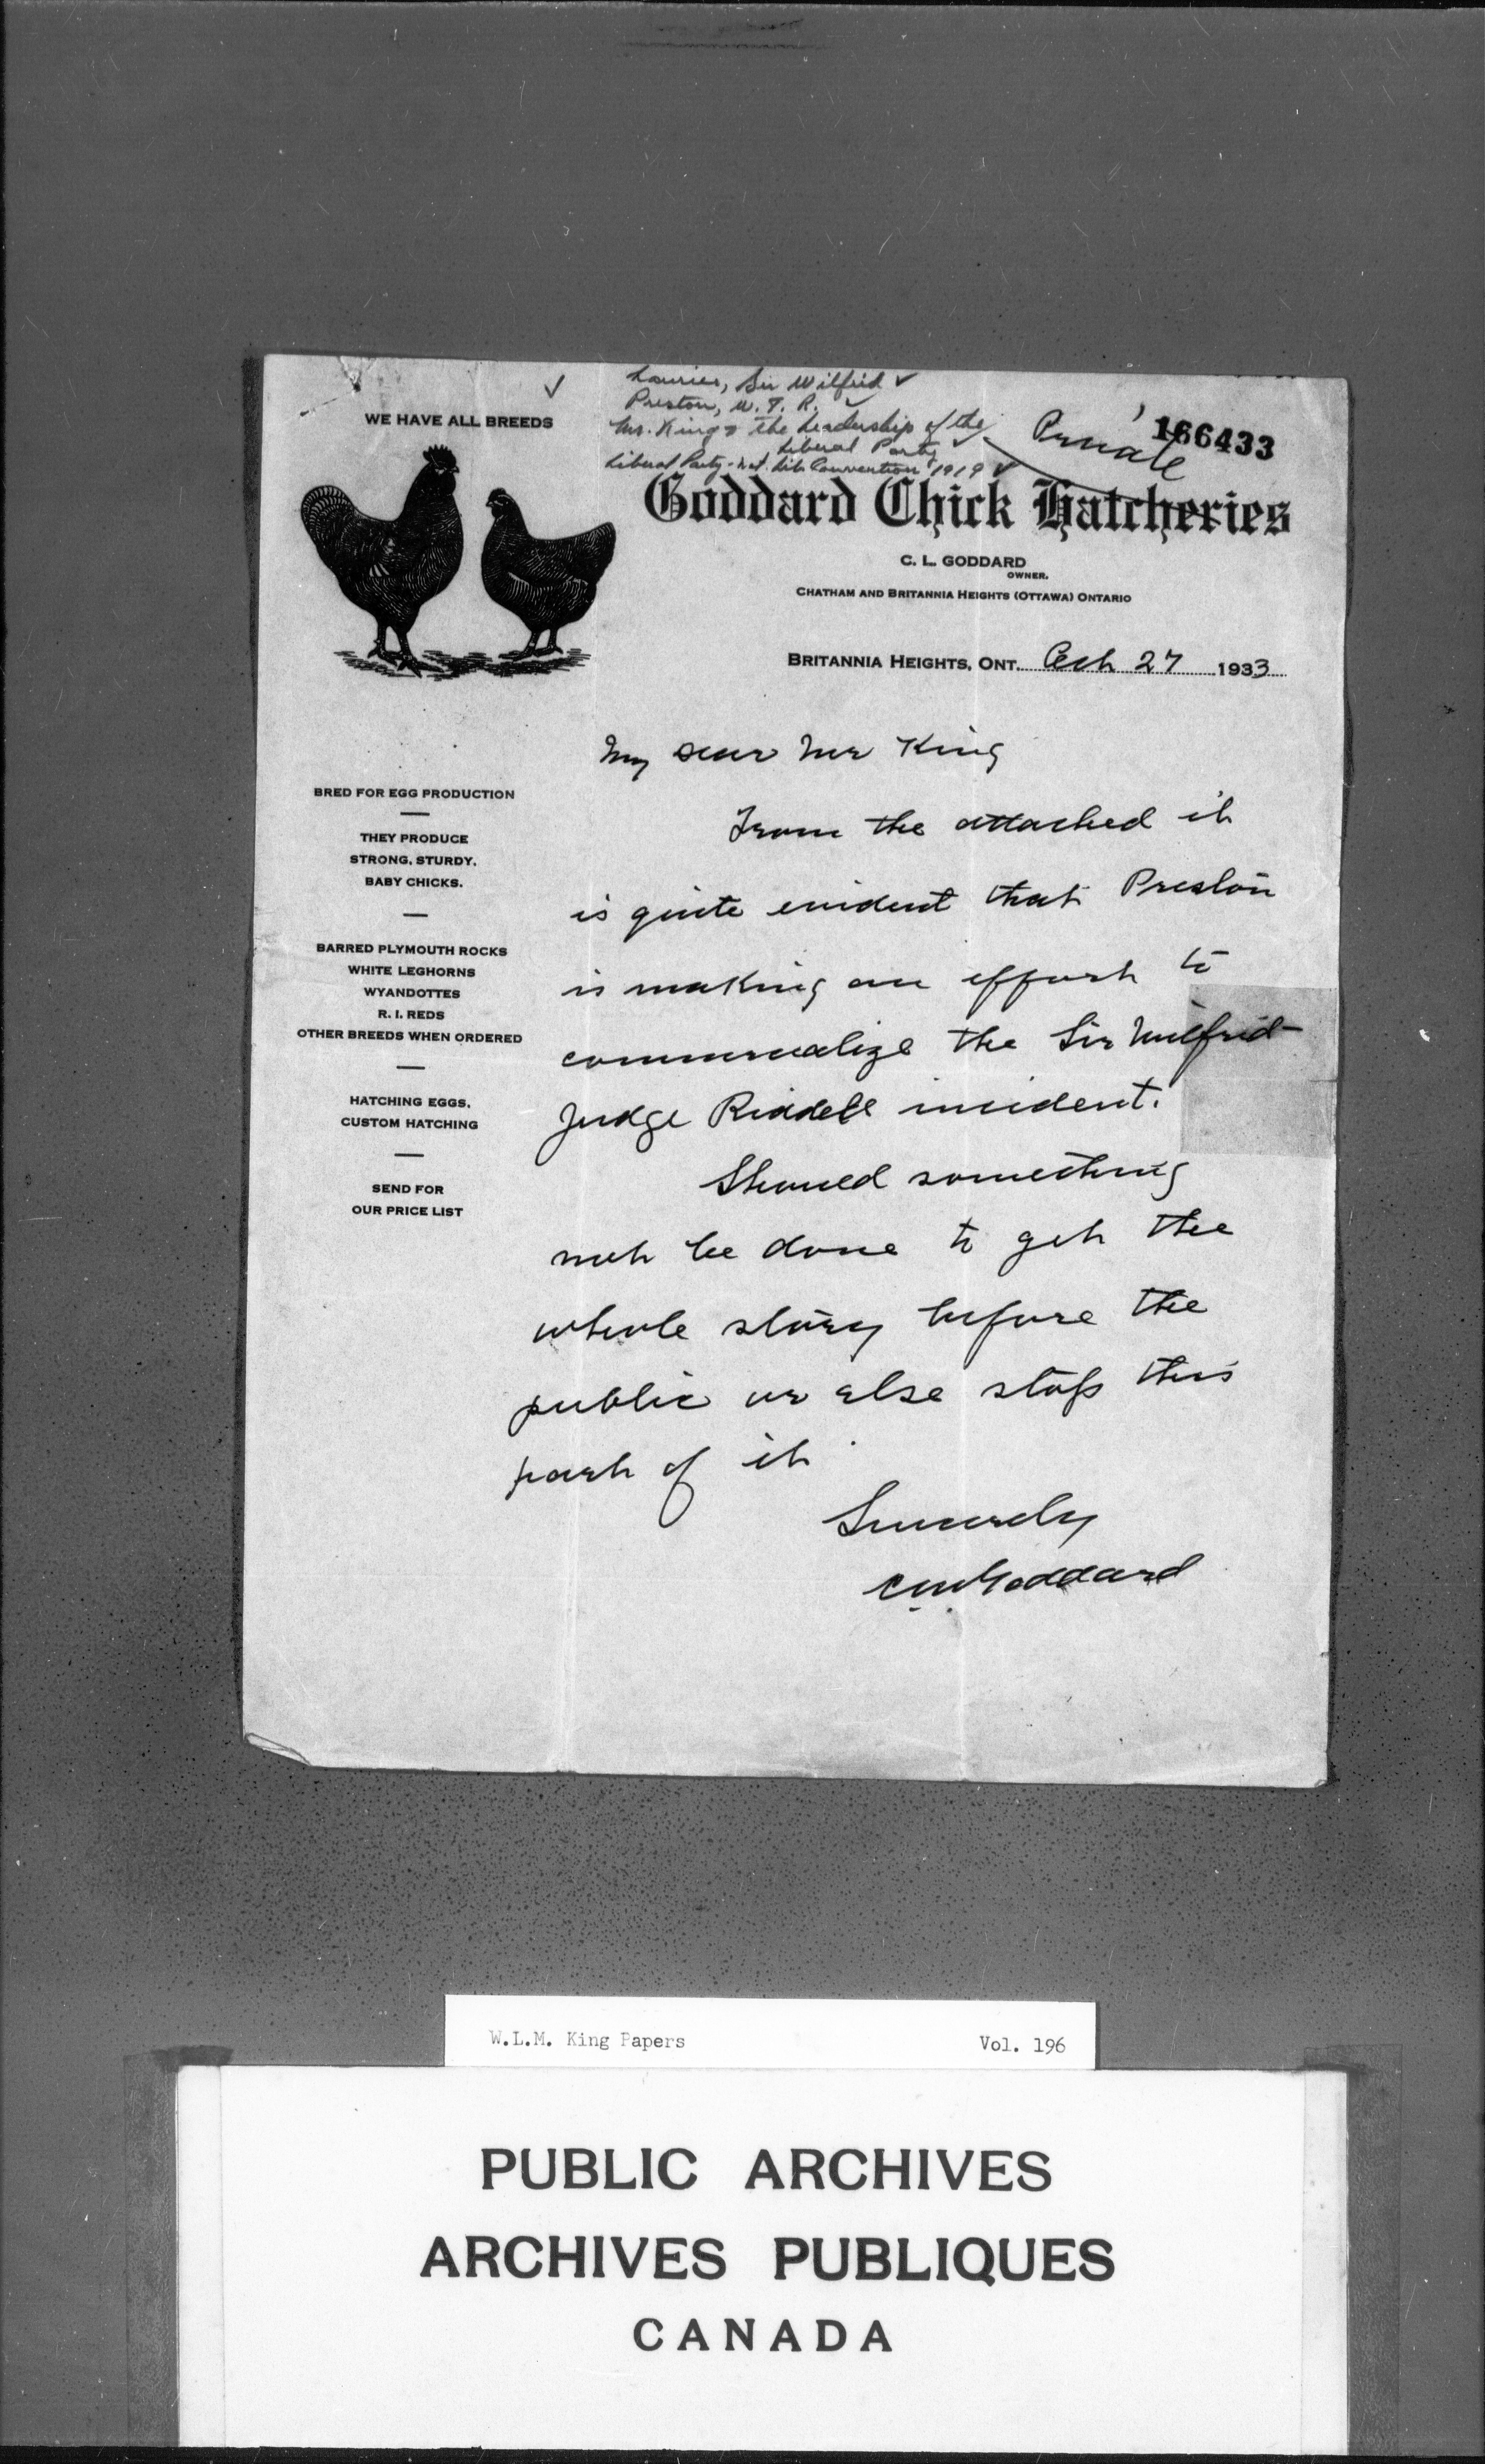 Laurier, Sir Wilfrid ✓
Preston, W. T. R. ✓
Mr. King & the Leadership of the
Liberal Party ✓
Liberal Party - Nat. Lib Convention 1919 ✓
Private
166433
WE HAVE ALL BREEDS
Goddard Chick Hatcheries
C. L. GODDARD
OWNER.
CHATHAM AND BRITANNIA HEIGHTS (OTTAWA) ONTARIO
BRITANNIA HEIGHTS, ONT. Oct 27 1933
BRED FOR EGG PRODUCTION
THEY PRODUCE
STRONG, STURDY,
BABY CHICKS.
BARRED PLYMOUTH ROCKS
WHITE LEGHORNS
WYANDOTTES
R. I. REDS
OTHER BREEDS WHEN ORDERED
HATCHING EGGS,
CUSTOM HATCHING
SEND FOR
OUR PRICE LIST
My dear Mr King
From the attached it
is quite evident that Preston
is making an effort to
commercialize the Sir Wilfrid-
Judge Riddell incident.
Should something
not be done to get the
whole story before the
public or else stop this
part of it.
Sincerely
Goddard
W.L.M. King Papers
Vol. 196
PUBLIC ARCHIVES
ARCHIVES PUBLIQUES
CANADA